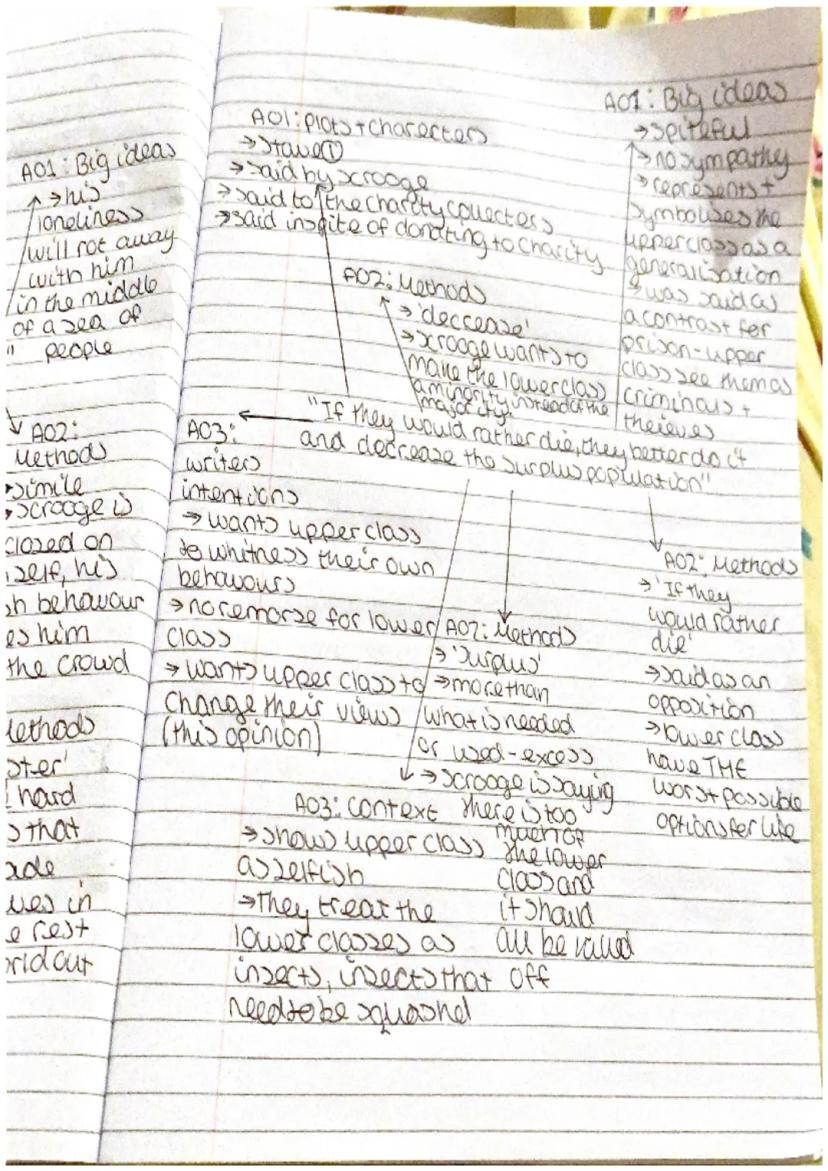 AO1: Big ideas
→ his
loneliness
will not away
with him
in the middle
of a sea of
" people
AO2:
Methods
→ simile
→ scrooge is
closed on
self, his
behavour
him
the crowd
Methods
hard
that
in
rest
out
AO1: plots + charecters
→ stave ①
→ said by scrooge
→ said to the charity collecters
→ said inspite of donating to charity
AO1: Big ideas
→ spiteful
→ no sympathy
→ represents +
symbolises the
upperclass as a
generalisation
→ was said as
a contrast for
prison - upper
class see them as
criminals +
theieves
AO2: Methods
→ 'deccrease'
→ scrooge wants to
make the lowerclass
a minority instead of the
majority.
"If they would rather die, they better do it
and decrease the surplus population"
AO3:
writers
intentions
→ wants upper class
to whitness their own
behavours
→ no remorse for lower
class
→ wants upper class to
change their views
(this opinion)
AO2: Methods
→ 'surplus'
→ more than
what is needed
or used - excess
→ scrooge is saying
there is too
much of
the lower
class and
it should
all be
off
AO2: Methods
→ 'If they
would rather
die'
→ said as an
opposition
→ lower class
have THE
worst possible
options for life
AO3: context
→ shows upper class
as selfish
→ They treat the
lower classes as
insects, insects that
need to be squashed